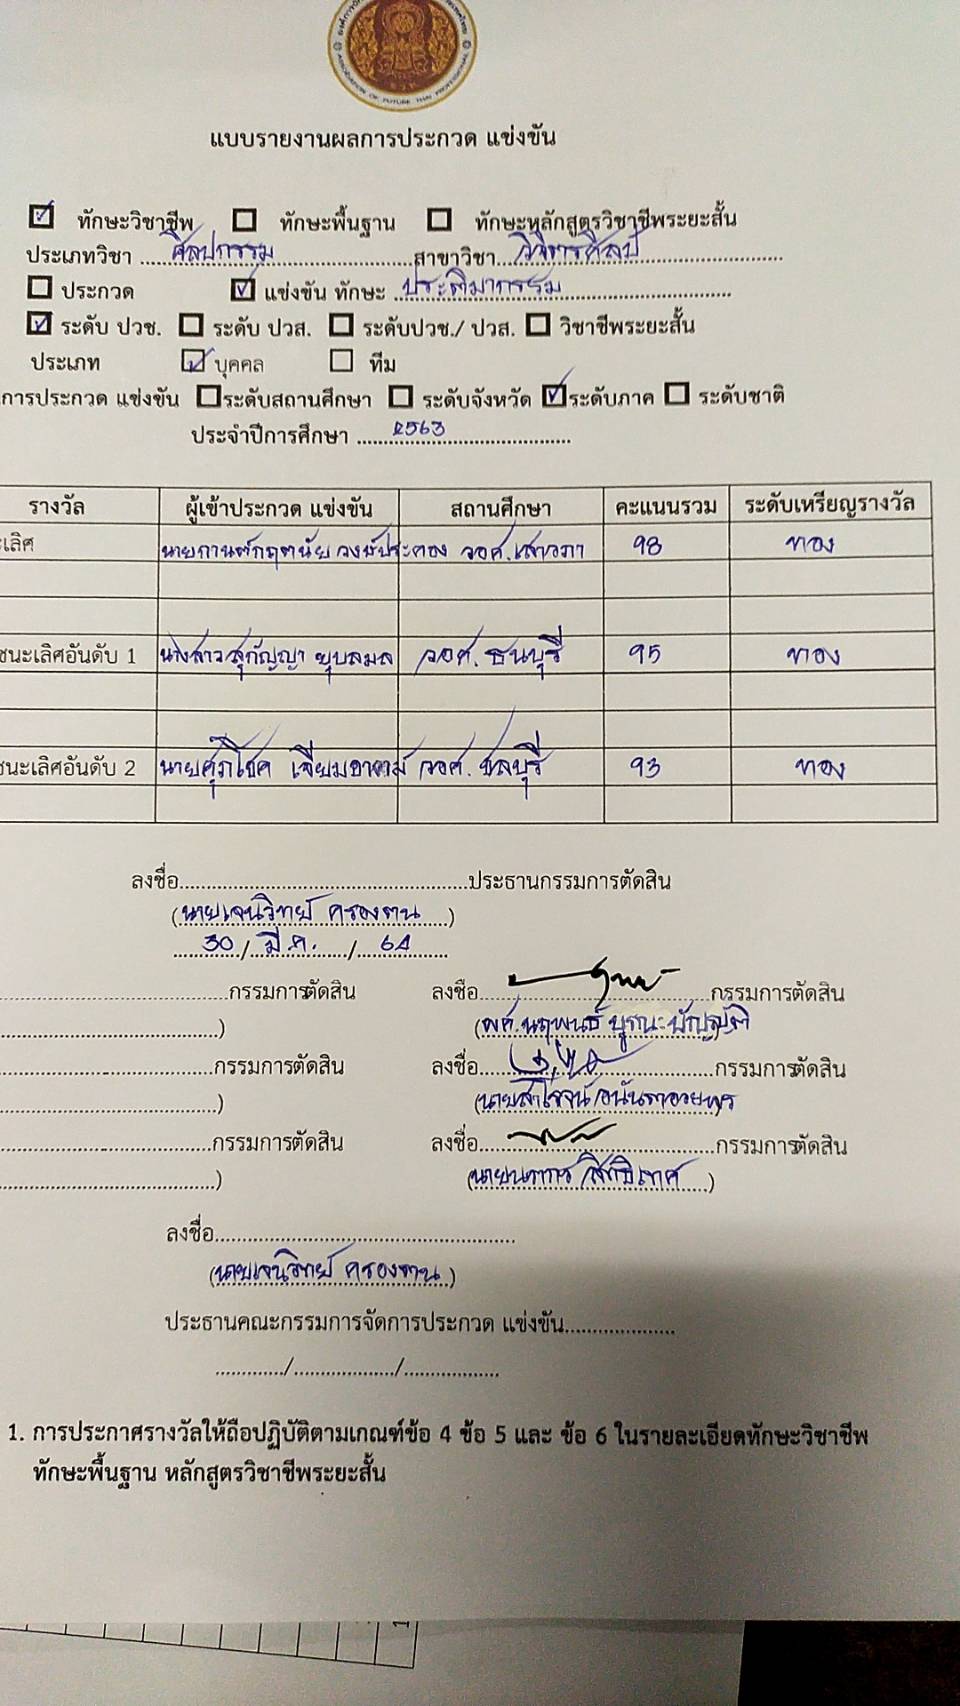 ASSOCIATION OF FUTURE THAI PROFESSIONAL
แบบรายงานผลการประกวด แข่งขัน
ทักษะวิชาชีพ ทักษะพื้นฐาน ทักษะหลักสูตรวิชาชีพระยะสั้น
ประเภทวิชา ศิลปกรรม สาขาวิชา วิจิตรศิลป์
ประกวด แข่งขัน ทักษะ ประติมากรรม
ระดับ ปวช. ระดับ ปวส. ระดับปวช./ ปวส. วิชาชีพระยะสั้น
ประเภท บุคคล ทีม
การประกวด แข่งขัน ระดับสถานศึกษา ระดับจังหวัด ระดับภาค ระดับชาติ
ประจำปีการศึกษา 2563
รางวัล ผู้เข้าประกวด แข่งขัน สถานศึกษา คะแนนรวม ระดับเหรียญรางวัล
ะเลิศ นายกานต์กฤตนัย วงษ์ประคอง วอศ.เสาวภา 98 ทอง
ชนะเลิศอันดับ 1 นางสาวสุกัญญา ยุบลมล วอศ. ธนบุรี 95 ทอง
ชนะเลิศอันดับ 2 นายศุภโชค วอศ. ชลบุรี 93 ทอง
ลงชื่อ ประธานกรรมการตัดสิน
(นายเจนวิทย์ ครองตน)
30 / มี.ค. / 64
กรรมการตัดสิน ลงชื่อ กรรมการตัดสิน
) (ผศ.นฤพนธ์ บูรณะบัญญัติ
กรรมการตัดสิน ลงชื่อ กรรมการตัดสิน
) (นายสาโรจน์ อนันตอวยพร
กรรมการตัดสิน ลงชื่อ กรรมการตัดสิน
) (นาย )
ลงชื่อ
(นายเจนวิทย์ ครองตน)
ประธานคณะกรรมการจัดการประกวด แข่งขัน
/ /
1. การประกาศรางวัลให้ถือปฏิบัติตามเกณฑ์ข้อ 4 ข้อ 5 และ ข้อ 6 ในรายละเอียดทักษะวิชาชีพ
ทักษะพื้นฐาน หลักสูตรวิชาชีพระยะสั้น